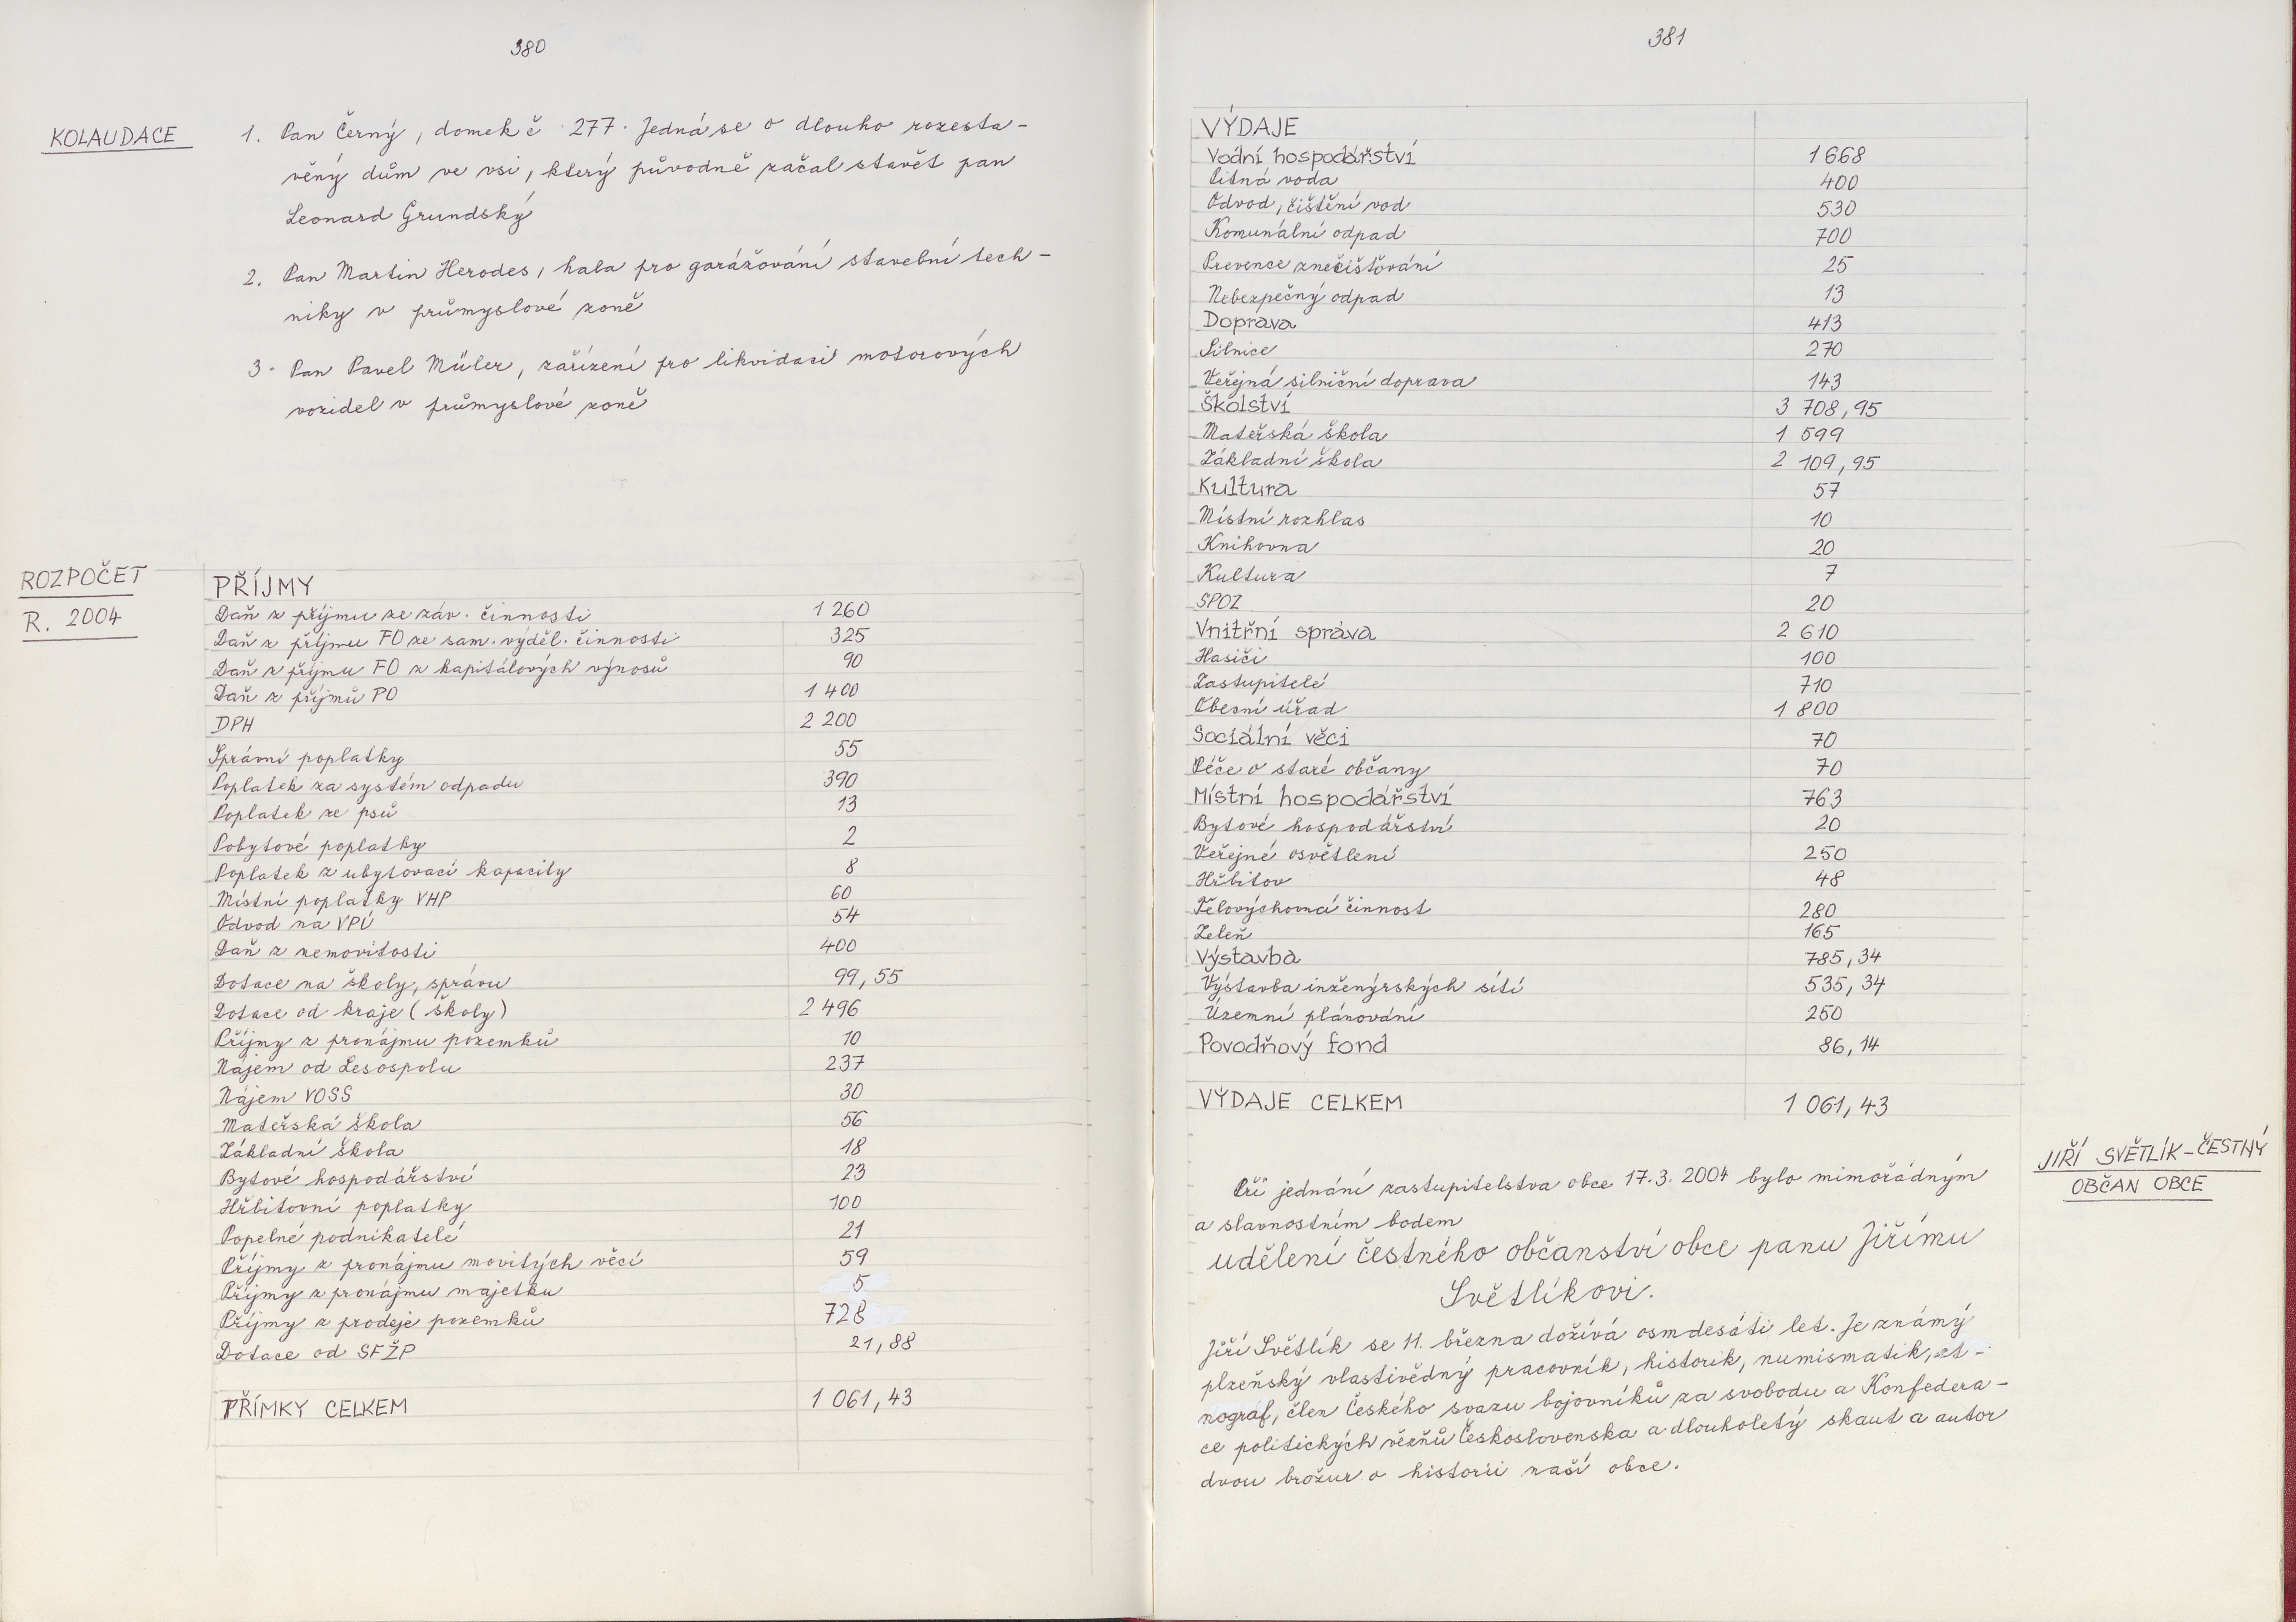 380
KOLAUDACE
1. Pan Černý, domek č 277. Jedná se o dlouho rozesta-
věný dům ve vsi, který původně začal stavět pan
Leonard Grundský
2. Pan Martin Herodes, hala pro garážování stavební tech-
niky v průmyslové zoně
3. Pan Pavel Müler, zařízení pro likvidaci motorových
vozidel v průmyslové zoně
ROZPOČET
R. 2004
PŘÍJMY
Daň z příjmu ze záv. činnosti 1 260
Daň z příjmu FO ze sam. výděl. činnosti 325
Daň z příjmu FO z kapitálových výnosů 90
Daň z příjmů PO 1 400
DPH 2 200
Správní poplatky 55
Poplatek za systém odpadu 390
Poplatek ze psů 13
Pobytové poplatky 2
Poplatek z ubytovací kapacity 8
Místní poplatky VHP 60
Odvod na VPÚ 54
Daň z nemovitosti 400
Dotace na školy, správu 99,55
Dotace od kraje (školy) 2 496
Příjmy z pronájmu pozemků 10
Nájem od Lesospolu 237
Nájem VOSS 30
Mateřská škola 56
Základní škola 18
Bytové hospodářství 23
Hřbitovní poplatky 100
Popelné podnikatelé 21
Příjmy z pronájmu movitých věcí 59
Příjmy z pronájmu majetku 5
Příjmy z prodeje pozemků 728
Dotace od SFŽP 21,88
PŘÍMKY CELKEM 1 061,43
381
VÝDAJE
Vodní hospodářství 1 668
Pitná voda 400
Odvod, čištění vod 530
Komunální odpad 700
Prevence znečišťování 25
Nebezpečný odpad 13
Doprava 413
Silnice 270
Veřejná silniční doprava 143
Školství 3 708,95
Mateřská škola 1 599
Základní škola 2 109,95
Kultura 57
Místní rozhlas 10
Knihovna 20
Kultura 7
SPOZ 20
Vnitřní správa 2 610
Hasiči 100
Zastupitelé 710
Obecní úřad 1 800
Sociální věci 70
Péče o staré občany 70
Místní hospodářství 763
Bytové hospodářství 20
Veřejné osvětlení 250
Hřbitov 48
Tělovýchovná činnost 280
Zeleň 165
Výstavba 785,34
Výstavba inženýrských sítí 535,34
Územní plánování 250
Povodňový fond 86,14
VÝDAJE CELKEM 1 061,43
JIŘÍ SVĚTLÍK-ČESTNÝ
OBČAN OBCE
Při jednání zastupitelstva obce 17.3. 2004 bylo mimořádným
a slavnostním bodem
udělení čestného občanství obce panu Jiřímu
Světlíkovi.
Jiří Světlík se 11. března dožívá osmdesáti let. Je známý
plzeňský vlastivědný pracovník, historik, numismatik, et-
nograf, člen Českého svazu bojovníků za svobodu a Konfedera-
ce politických vězňů Československa a dlouholetý skaut a autor
dvou brožur o historii naší obce.